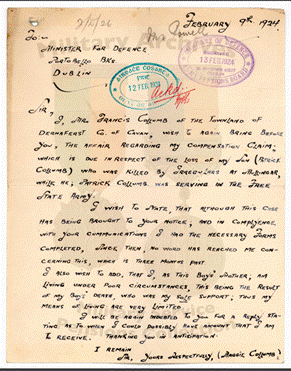 2/5/26
February 9th. 1924.
To:-
Minister For Defence
Portobello Bks
Dublin
12 FEB 1924
13 FEB 1924
Sir,
I, Mrs. Francis Collumb of the Townland of
Dernafeast Co. of Cavan, wish to again bring before
you, the affair regarding my compensation claim:
which is due in respect of the loss of my Son (Patrick
Collumb) who was killed by Irregulars at Mullingar,
while he, Patrick Collumb was serving in the Free
State Army.
I wish to state that although this case
has been brought to your notice, and in complyence
with your communications I had the necessary forms
completed, since then, no word has reached me con-
cerning this, which is three months past
I also wish to add, that I, as this Boy's Mother, am
living under poor circumstances, this being the result
of my Boy's death, who was my sole support; thus my
means of living are very limited.
I will be again indebted to you for a reply sta-
ting, as to when I could possibly have amount that I am
to receive. Thanking you in anticipation:
I remain
Sir, yours respectfully, (Maggie Collumb)